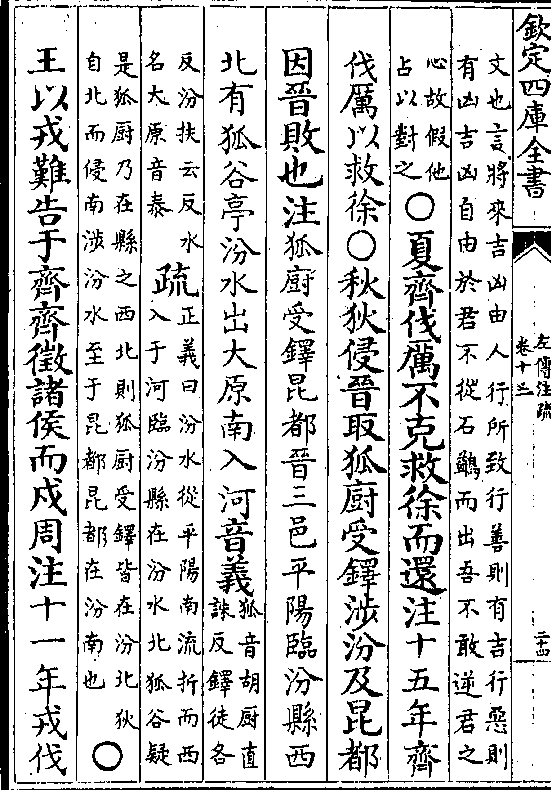 欽定四庫全書
左傳注疏
卷十三
二十四
文也言將來吉凶由人行所致行善則有吉行惡則
有凶吉凶自由於君不從石鷁而出吾不敢逆君之
心故假他
占以對之
○夏齊伐厲不克救徐而還注十五年齊
伐厲以救徐○秋狄侵晉取狐廚受鐸涉汾及昆都
因晉敗也注狐廚受鐸昆都晉三邑平陽臨汾縣西
北有狐谷亭汾水出大原南入河音義
狐音胡廚直
誅反鐸徒各
反汾扶云反水
名大原音泰
疏
正義曰汾水從平陽南流折而西
入于河臨汾縣在汾水北狐谷疑
是狐廚乃在縣之西北則狐廚受鐸皆在汾北狄
自北而侵南涉汾水至于昆都昆都在汾南也
○
王以戎難告于齊齊徵諸侯而戍周注十一年戎伐